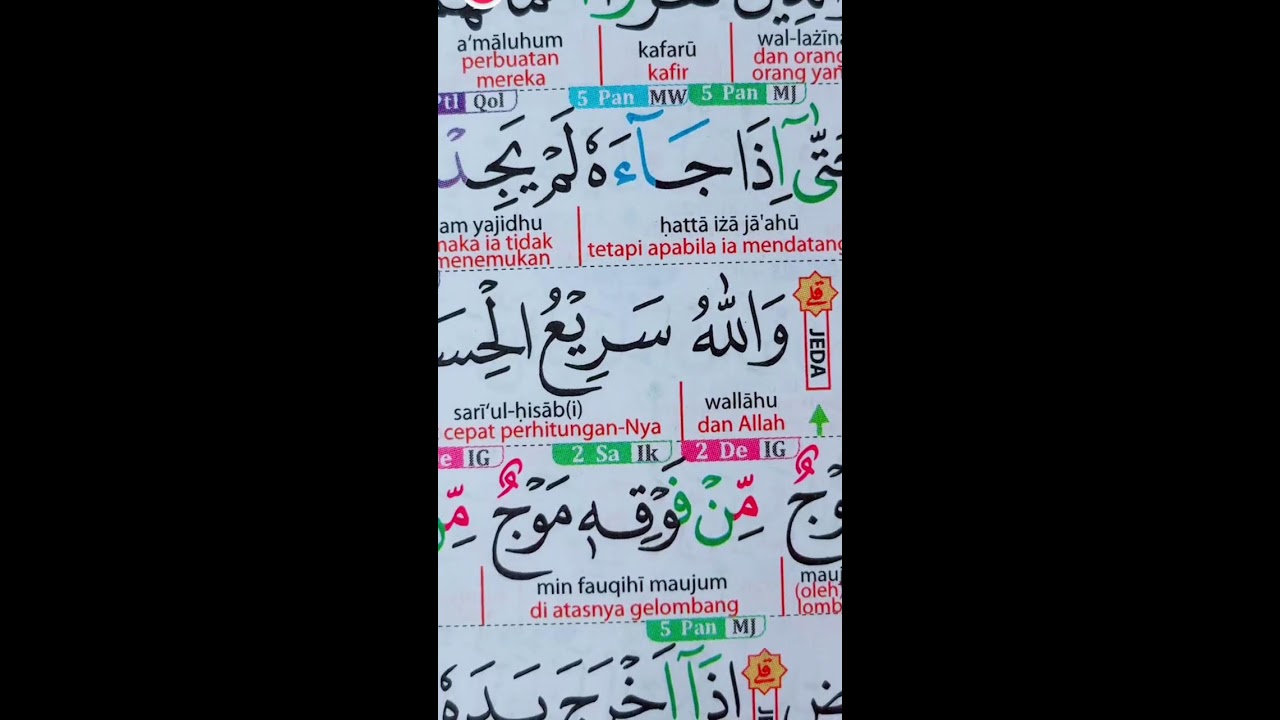 a‘māluhum kafarū wal-lażīna
perbuatan mereka kafir dan orang orang yan
Qol 5 Pan MW 5 Pan MJ
حَتّٰىٓ اِذَا جَاۤءَهٗ لَمْ يَجِدْ
am yajidhu ḥattā iżā jā'ahū
naka ia tidak menemukan tetapi apabila ia mendatang
وَاللّٰهُ سَرِيْعُ الْحِسَ
JEDA
sarī‘ul-ḥisāb(i) wallāhu
cepat perhitungan-Nya dan Allah
IG 2 Sa Ik 2 De IG
وْجٌ مِّنْ فَوْقِهٖ مَوْجٌ مِّنْ
min fauqihī maujum mauj
di atasnya gelombang (oleh) lomb
5 Pan MJ
ض اِذَآ اَخْرَجَ يَدَهٗ